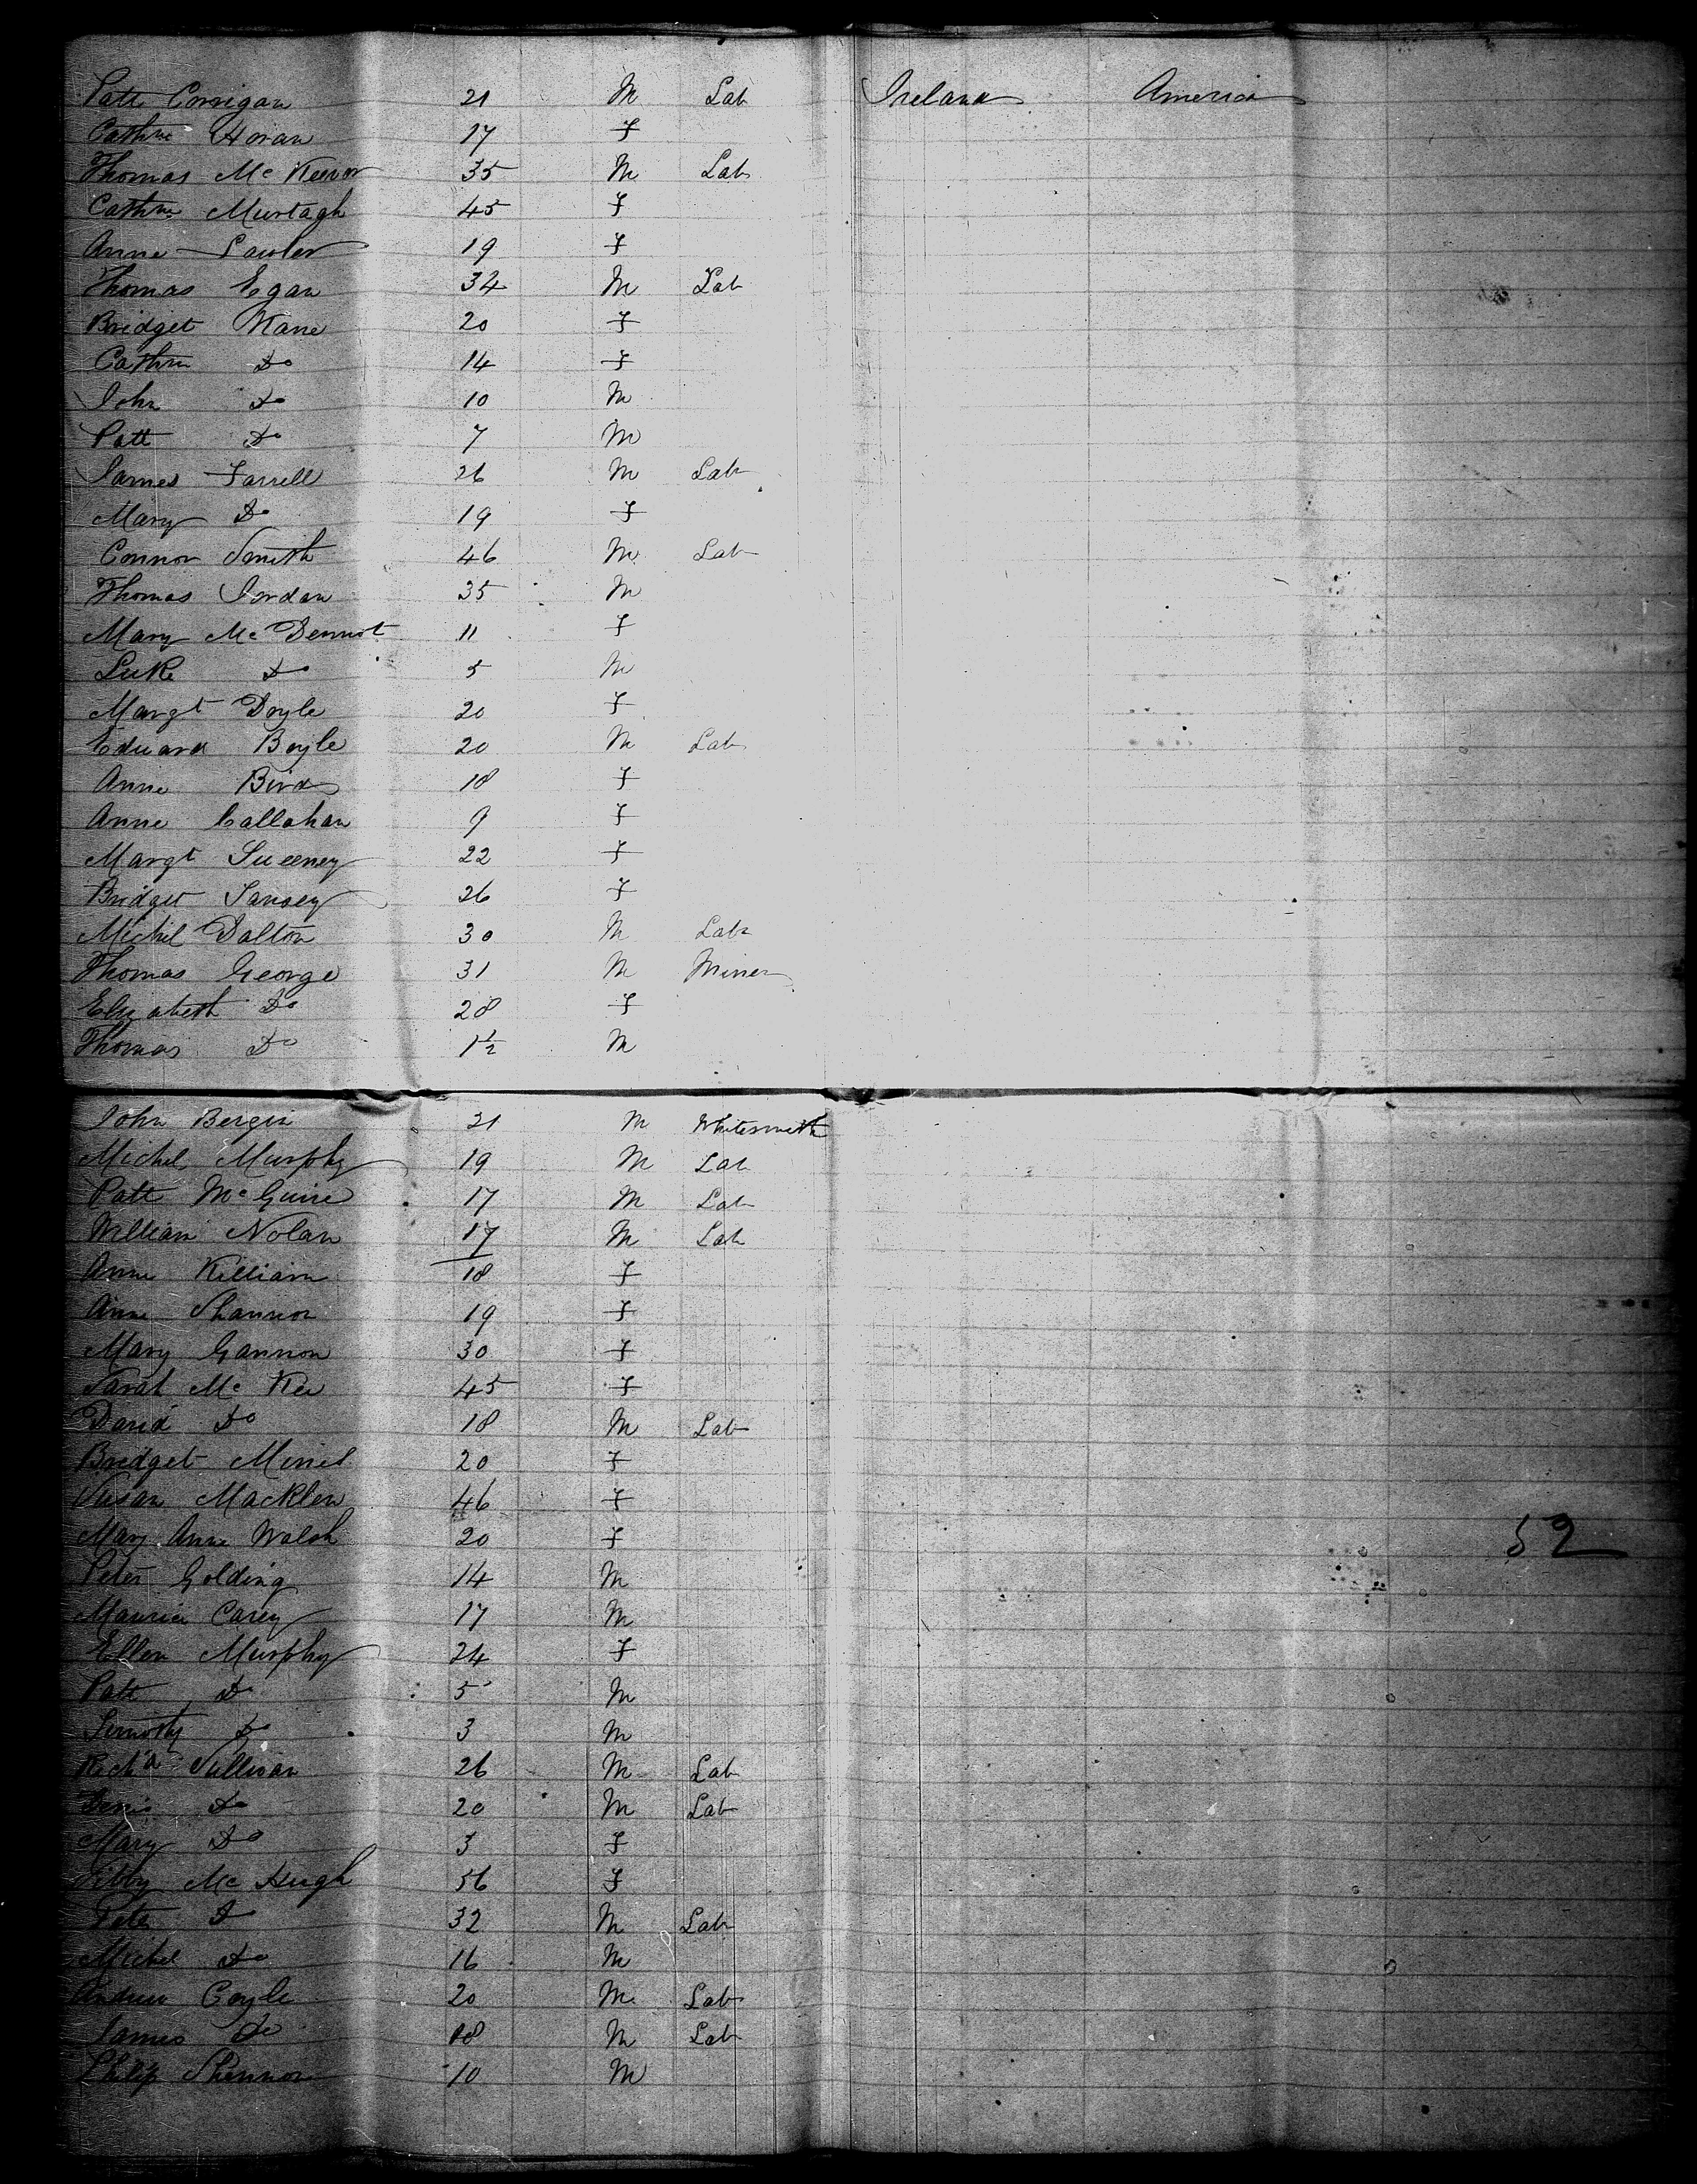 Patt Corrigan 21 M Lab Ireland America
Cathne Horan 17 f
Thomas Mc Keever 35 M Lab
Cathne Murtagh 45 f
Anne Lawler 19 f
Thomas Egan 34 M Lab
Bridget Kane 20 f
Cathne Do 14 f
John Do 10 M
Patt Do 7 M
James Farrell 26 M Lab
Mary Do 19 f
Connor Smith 46 M Lab
Thomas Jordan 35 M
Mary Mc Dermot 11 f
Luke Do 5 M
Margt Doyle 20 f
Edward Boyle 20 M Lab
Anne Bird 18 f
Anne Callahan 9 f
Margt Sweeney 22 f
Bridget 26 f
Michel Dalton 30 M Lab
Thomas George 31 M Miner
Elizabeth Do 28 f
Thomas Do 1 1/2 M
John Bergin 21 M Whitesmith
Michel Murphy 19 M Lab
Patt McGuire 17 M Lab
William Nolan 17 M Lab
Anne Killian 18 f
Anne Shannon 19 f
Mary Gannon 30 f
Sarah Mc Kee 45 f
David Do 18 M Lab
Bridget 20 f
Susan Macklen 46 f
Mary Anne Walsh 20 f 52
Peter Golding 14 M
Maurice Carey 17 M
Ellen Murphy 24 f
Patt Do 5 M
Timothy Do 3 M
Richd Sullivan 26 M Lab
Denis Do 20 M Lab
Mary Do 3 f
Sibby Mc Hugh 56 f
Peter Do 32 M Lab
Michel Do 16 M
Andrew Coyle 20 M Lab
James Do 18 M Lab
Philip Shannon 10 M